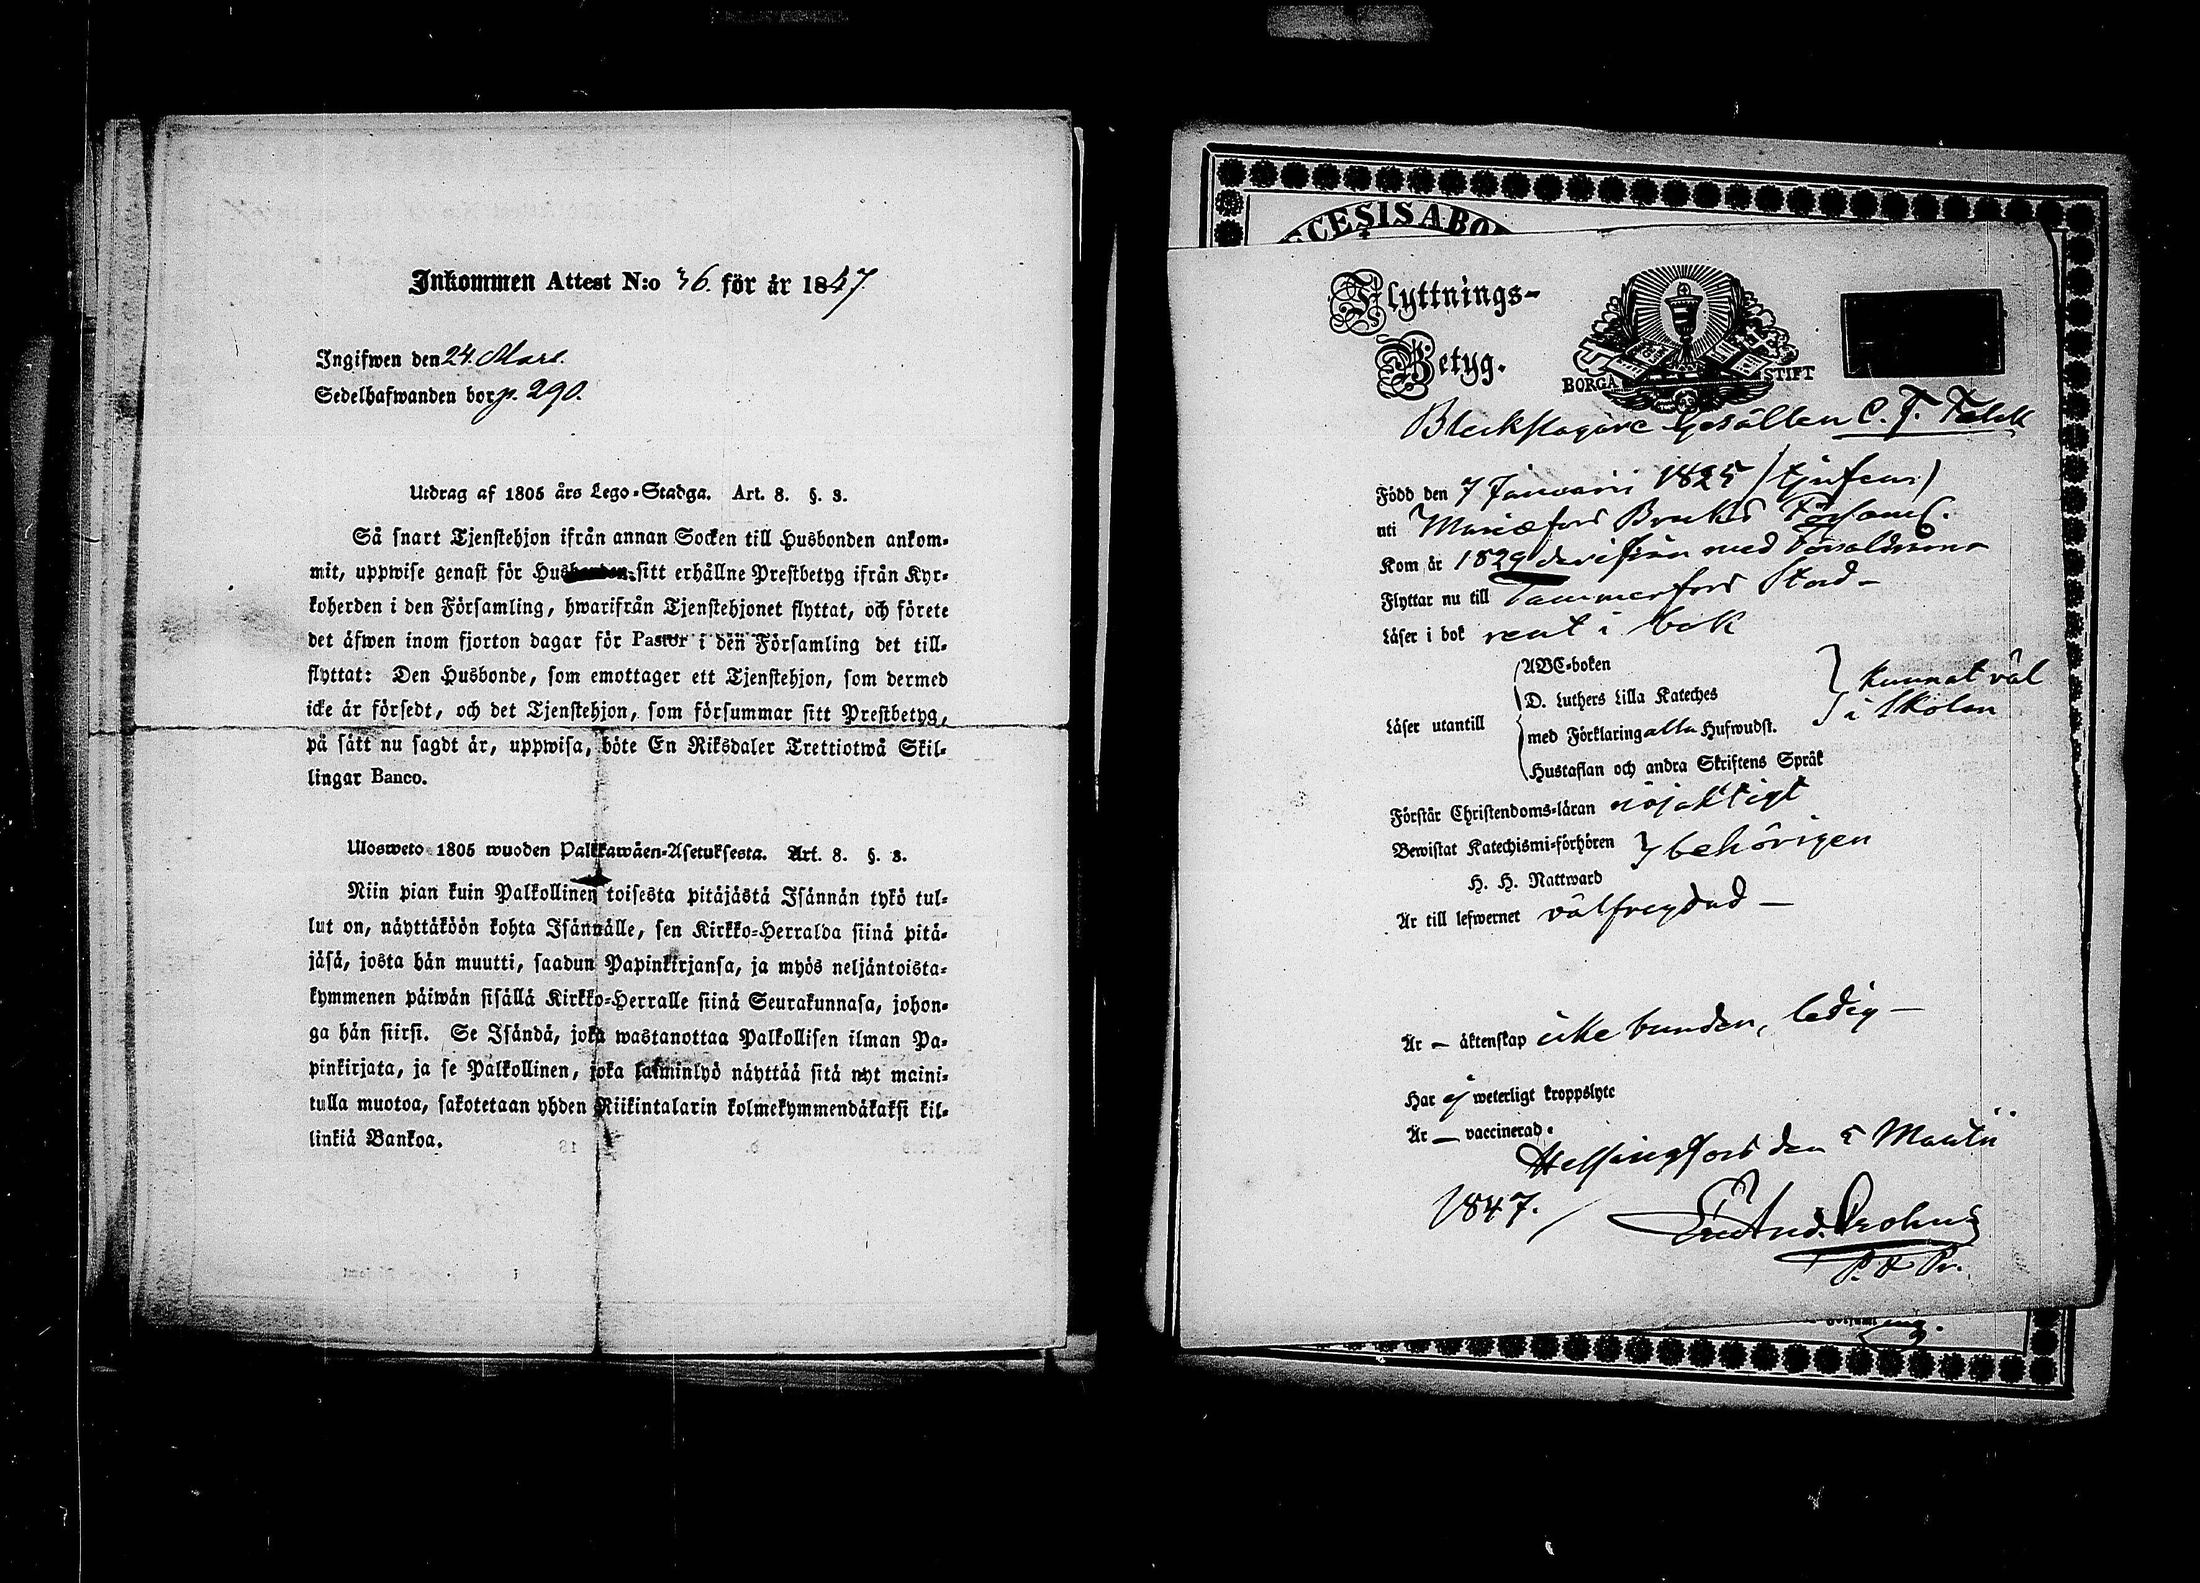 Inkommen Attest N:o 36 för år 1847.
Ingifwen den 24. Mars.
Sedelhafwanden bor p. 290.
Utdrag af 1805 års Lego-Stadga. Art. 8. §. 3.
Så snart Tjenstehjon ifrån annan Socken till Husbonden ankom-
mit, uppwise genast för sitt erhållne Prestbetyg ifrån Kyr-
koherden i den Församling, hwarifrån Tjenstehjonet flyttat, och förete
det äfwen inom fjorton dagar för Pastor i den Församling det till-
flyttat: Den Husbonde, som emottager ett Tjenstehjon, som dermed
icke är försedt, och det Tjenstehjon, som försummar sitt Prestbetyg,
på sätt nu sagdt är, uppwisa, böte En Riksdaler Trettiotwå Skil-
lingar Banco.
Ulosweto 1805 wuoden Palkkawäen-Asetuksesta. Art. 8. §. 3.
Niin pian kuin Palkollinen toisesta pitäjästä Isännän tykö tul-
lut on, näyttäköön kohta Isännälle, sen Kirkko-Herralda siinä pitä-
jäsä, josta hän muutti, saadun Papinkirjansa, ja myös neljäntoista-
kymmenen päiwän sisällä Kirkko-Herralle siinä Seurakunnasa, johon-
ga hän siirsi. Se Isändä, joka wastanottaa Palkollisen ilman Pa-
pinkirjata, ja se Palkollinen, joka laiminlyö näyttää sitä nyt maini-
tulla muotoa, sakotetaan yhden Riikintalarin kolmekymmendäkaksi kil-
linkiä Bankoa.
ECESIS ABO
Flyttnings-
Betyg.
BORGÅ STIFT
Bleckslagare Gesällen C. F.
Född den 7 Januarii 1825 /tjufem/
uti Mariæfors Bruks Församl.
Kom år 1829 derifrån med Föräldrarna
Flyttar nu till Tammerfors Stad –
Läser i bok rent i bok
Läser utantill
ABC-boken
D. Luthers Lilla Kateches
med Förklaring alla Hufwudst.
Hustaflan och andra Skriftens Språk
} kunnat väl
i Skolan
Förstår Christendoms-läran nöjaktigt
Bewistat Katechismi-förhören } behörigen
H. H. Nattward
Är till lefwernet välfreydad –
Är – äktenskap icke bunden, ledig –
Har ej weterligt kroppslyte
Är – vaccinerad.
Helsingfors den 5 Martii
1847.